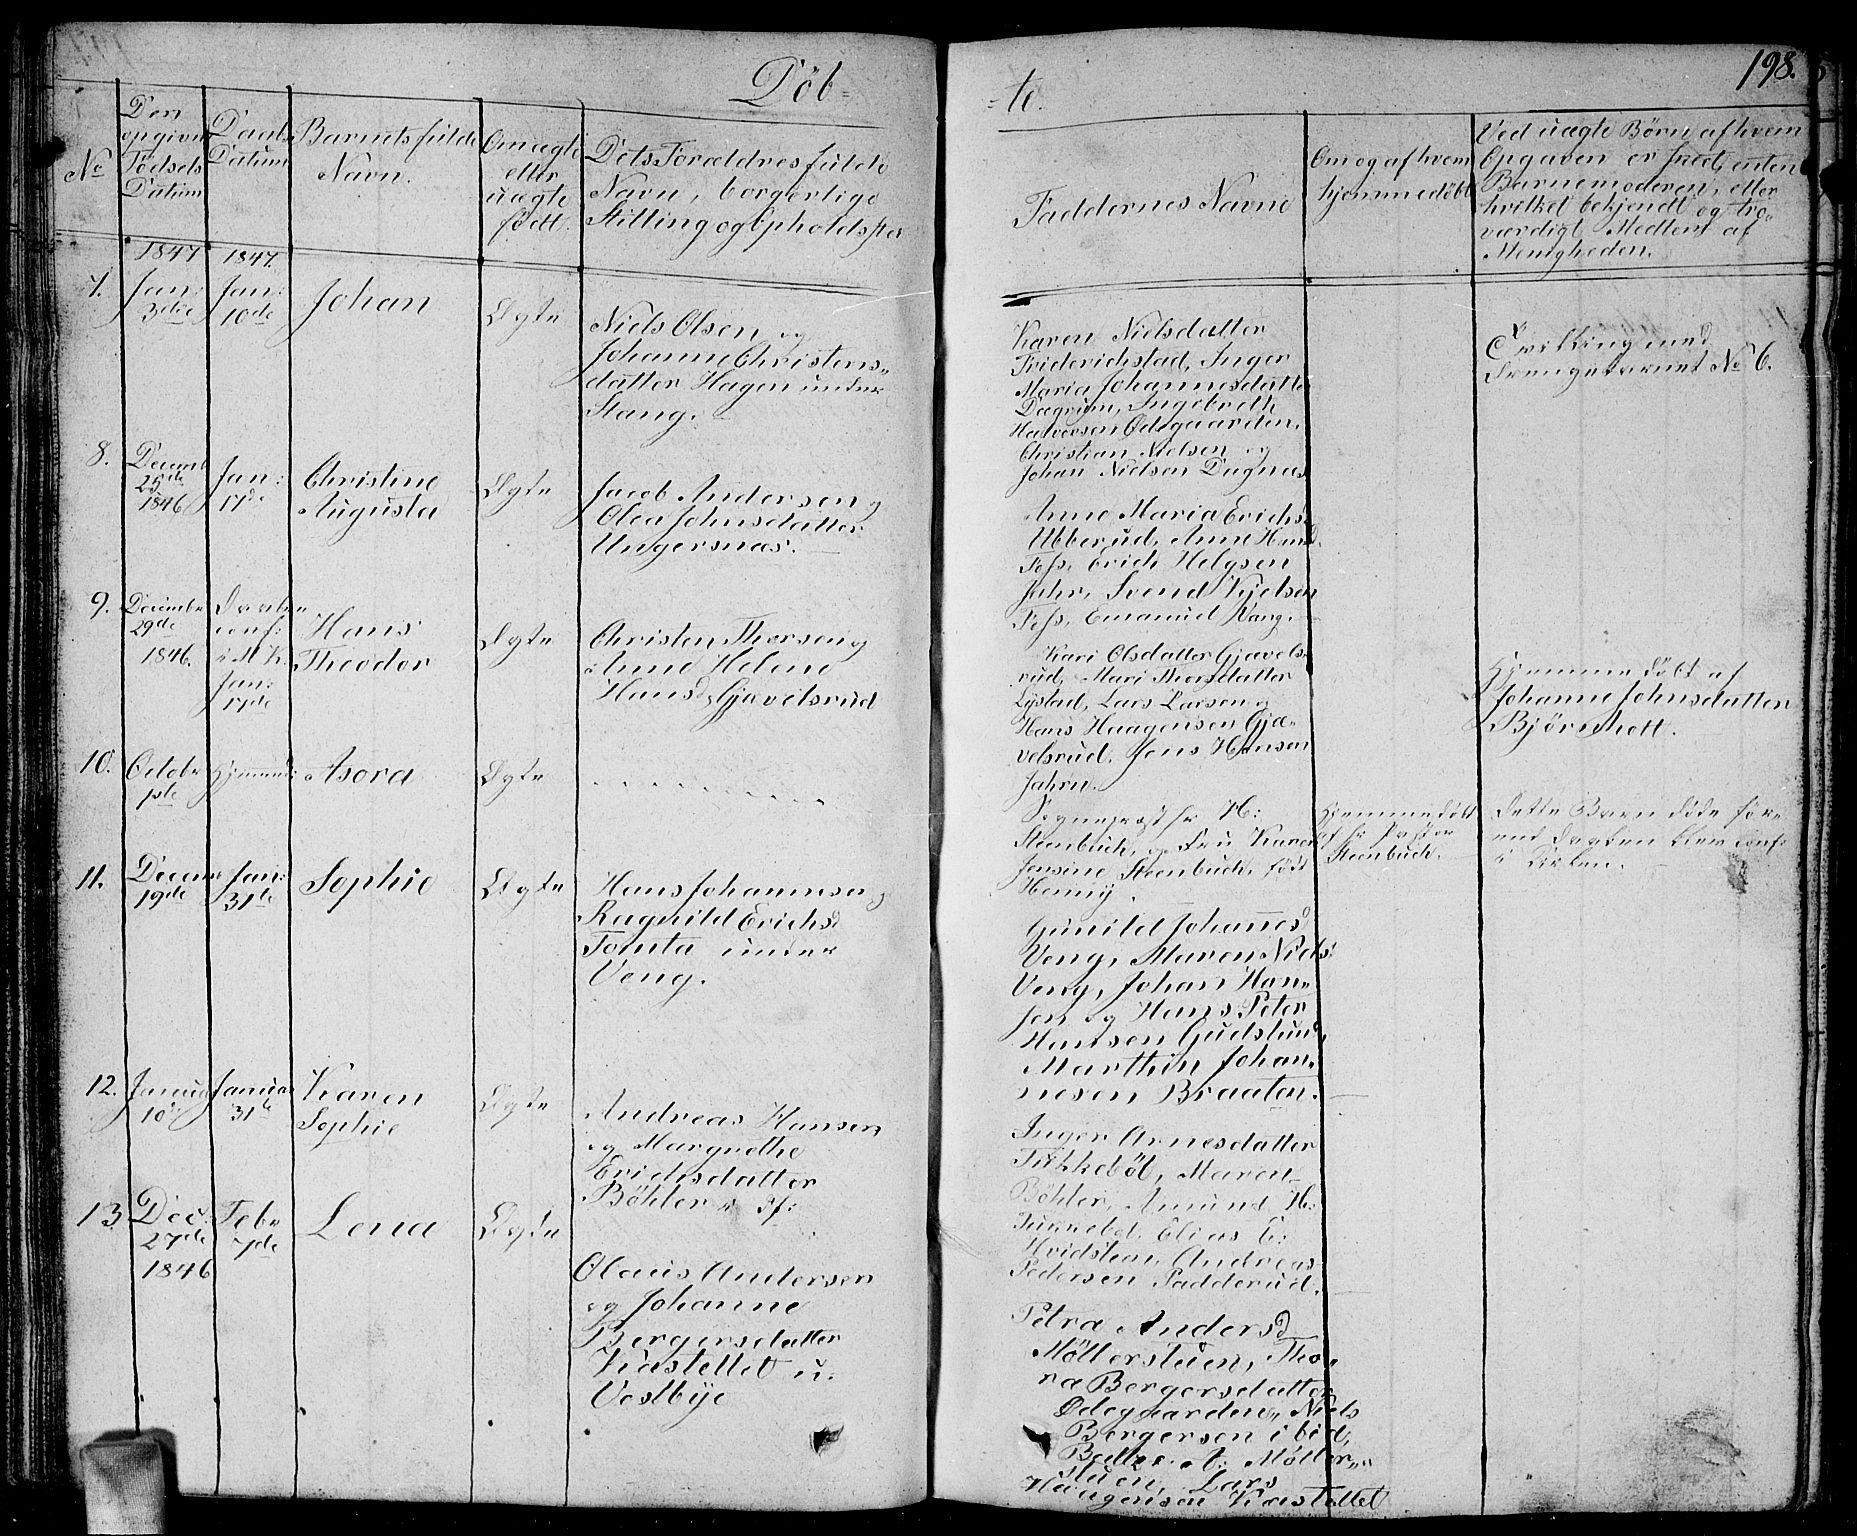 198.
Döb=
=te.
No
Den opgivne Fødsels Datum
Daabs Datum
Barnets fulde Navn.
Om ægte eller uægte født.
Dets Forældres fulde Navn, borgerlige Stilling og Opholdssted
Faddernes Navne
Om og af hvem hjemmedöbt
Ved uægte Börn af hvem Opgaven er skeet, enten Barnemoderen, eller hvilket bekjendt og troværdigt Medlem af Menigheden.
1847
1847.
7.
Jan: 3die
Jan: 10de
Johan
Ægte
Niels Olsen og
Johanne Christens-
datter Hagen under
Stang.
Karen Nielsdatter
Friderichstad, Inger
Maria Johannesdatter
Dægrum, Ingebreth
Halversen Ødegaarden,
Christian Nielsen og
Johan Nielsen Dugnæs
Tvilling med
Drengebarnet No 6.
8.
Decemb 25de 1846
Jan: 17de
Christine
Augusta
Ægte
Jacob Andersen og
Olea Johnsdatter
Ungersnæs.
Anne Maria Erichs
Ubberud, Anne Hansd
Foss, Erich Helgsen
Jahr, Svend Kjelsen
Foss, Emanuel Vang.
9.
Decembr 29de 1846.
Daaben conf: i M K. Jan: 17de
Hans
Theodor
Ægte
Christen Thorsen og
Anne Helene
Hansd Gjævelsrud
Kari Olsdatter Gjævels-
rud, Mari Thorsdatter
Lystad, Lars Larsen og
Hans Haagensen Gjæ-
velsrud, Jens Hansen
Jahru.
Hjemmedøbt af
Johanne Johnsdatter
Björnholt.
10.
Octobr 1ste
Hjemmed:
Asora
Ægte
Sogneprest hr H:
Steenbuch, og Fru Karen
Jensine Steenbuch, født
Hennig.
Hjemmedöbt
af hr Pastor
Steenbuch.
Dette Barn döde för
end Daaben blev conf:
i Kirken.
11.
Decem 19de
Jan: 31te
Sophie
Ægte
Hans Johannesen og
Ragnild Erichsd
Tomta under
Veng.
Gunild Johannesd
Veng, Maren Niels:
Veng, Johan Han-
sen og Hans Peter
Hansen Gudslund,
Marthin Johan-
nesen Braaten.
12.
Januar 10de
Januar 31te
Karen
Sophie
Ægte
Andreas Hansen
og Margrethe
Erichsdatter
Böhler
Inger Arnesdatter
Maren
Böhler, Amund H:
Elias E:
Hvidsten, Andreas
Pedersen Padderud.
13
Dec: 27de 1846
Febr 7de
Lena
Ægte
Olaus Andersen
og Johanne
Bergersdatter
Kastellet u.
Vestbye
Petra Andersd
Möllerstuen, Tho-
ra Bergersdatter
Ødegaarden, Niels
Bergersen ibid,
A: Möller-
stuen, Lars
Haagensen Kastellet